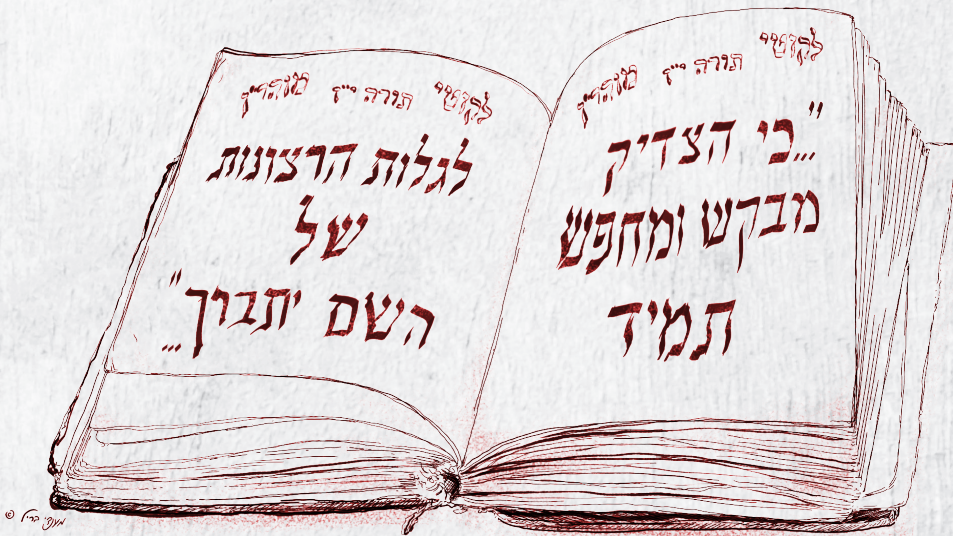 לקוטי תורה י״ז מוהר״ן
"כי הצדיק...
מבקש ומחפש
תמיד
לקוטי תורה י״ז מוהר״ן
לגלות הרצונות
של
השם יתברך"...
© מענדי בריל